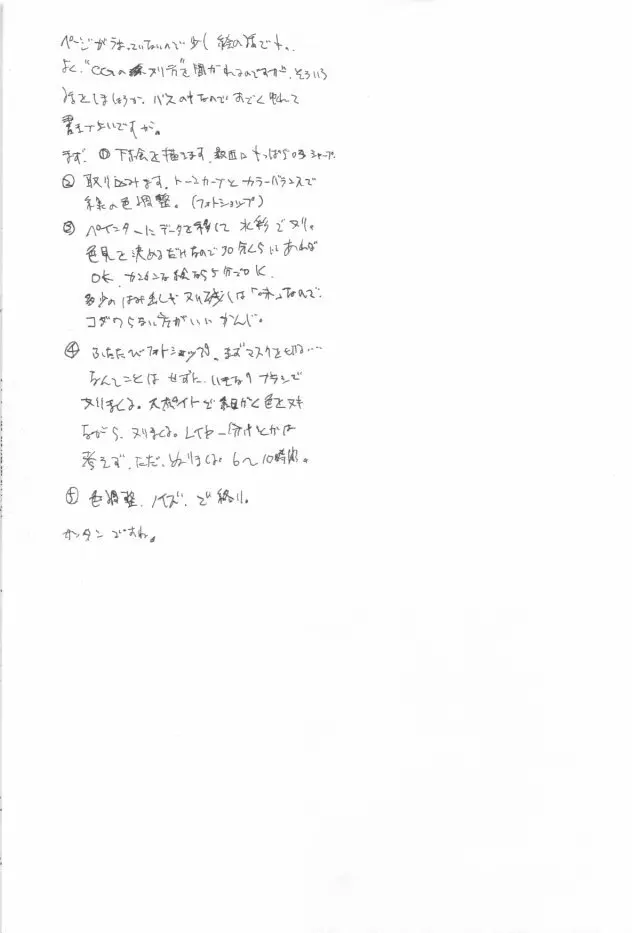 ページがうまっていないので少し絵の話でも。
よく、"CGのヌリ方"を聞かれるのですが、そういう
話をしましょうか、バスの中なのですごくゆれて
書きづらいですが。
まず、① 下絵を描きます、最近はもっぱら0.5シャープ
② 取り込みます。トーンカーブとカラーバランスで
線の色調整。(フォトショップ)
③ ペインターにデータを移して水彩でヌリ。
色見を決めるだけなので30分くらいあれば
OK、カンタンな絵なら5分でOK。
多少のはみ出しやヌリ残しは「味」なので
コダワらない方がいいかんじ。
④ ふたたびフォトショップ、まずマスクを切る…
なんてことはせずに、いきなりブラシで
ヌリまくる。スポイトで細かく色をヌキ
ながら、ヌリまくる。レイヤー分けとかは
考えず、ただ、ぬりまくる 6〜10時間。
⑤ 色調整、ノイズ、で終り。
カンタンですね。